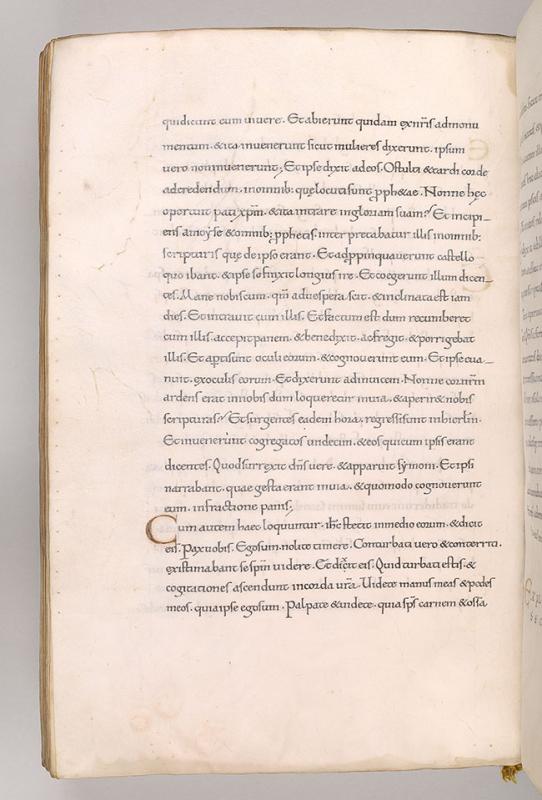 qui dicunt eum uiuere. Et abierunt quidam ex nr̄is ad monu
mentum. & ita inuenerunt sicut mulieres dixerunt. ipsum
uero non inuenerunt; Et ipse dixit ad eos. O stulti & tardi corde
ad credendum. in omnib; quę locuti sunt ꝓph&ae. Nonne hęc
oportuit pati xp̄m. & ita intrare in gloriam suam? Et incipi_
ens a moyse & omnib; ꝓphetis. inter pretabatur illis in omnib;
scripturis quę de ipso erant. Et adpropinquauerunt castello
quo ibant. & ipse se finxit longius ire. Et coegerunt illum dicen_
tes. Mane nobiscum. qm̄ aduesperascit. & inclinata est iam
dies. Et intrauit cum illis. Et factum est dum recumberet
cum illis. accepit panem. & benedixit. ac fregit. & porrigebat
illis. Et aperti sunt oculi eorum. & cognouerunt eum. Et ipse eua_
nuit. ex oculis eorum. Et dixerunt ad inuicem. Nonne cor nr̄m
ardens erat in nobis dum loqueretur in uia. & aperir& nobis
scripturas? Et surgentes eadem hora. regressi sunt in hierl̄m.
Et inuenerunt cogregatos undecim. & eos qui cum ipsis erant
dicentes. Quod surrexit dn̄s uere. & apparuit symoni. Et ipsi
narrabant. quae gesta erant in uia. & quomodo cognouerunt
eum. in fractione panis;
Cum autem haec loquuntur. ih̄c stetit in medio eorum. & dicit
eis. Pax uobis. Ego sum. nolite timere. Conturbati uero & conterriti.
existimabant se sp̄m uidere. Et dix̄ eis. Quid turbati estis. &
cogitationes ascendunt in corda ur̄a. Uidete manus meas & pedes
meos. quia ipse ego sum. Palpate & uidete. quia sp̄s carnem & ossa